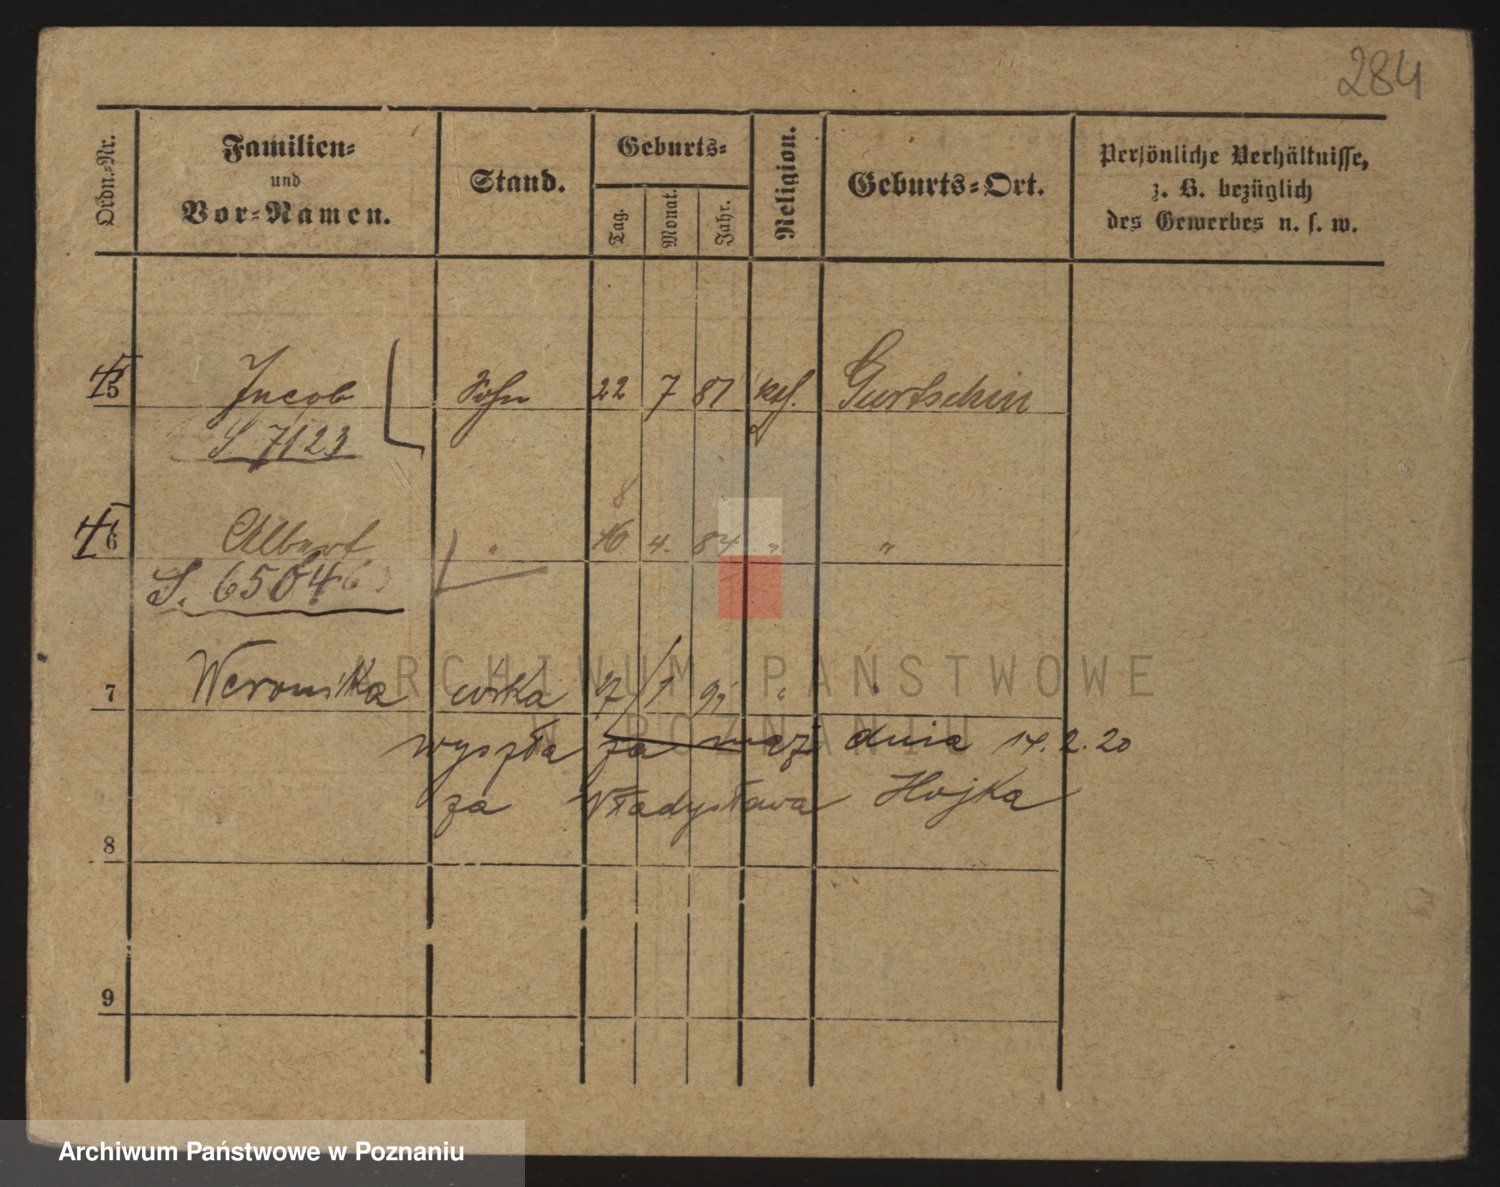 284
Ordn.-Nr.
Familien-
und
Vor-Namen.
Stand.
Geburts-
Tag.
Monat.
Jahr.
Religion.
Geburts-Ort.
Persönliche Verhältnisse,
z. B. bezüglich
des Gewerbes u. s. w.
5 Jacob Sohn 22 7 87 kth. Gurtschin
S 7123
8
6 Albert " 16 4. 84 " "
S. 65046
ARCHIWUM PAŃSTWOWE
W POZNANIU
7 Weronika córka 17/1 " "
wyszła za mąż dnia 14.2.20
za Władysława Hojka
8
9
Archiwum Państwowe w Poznaniu